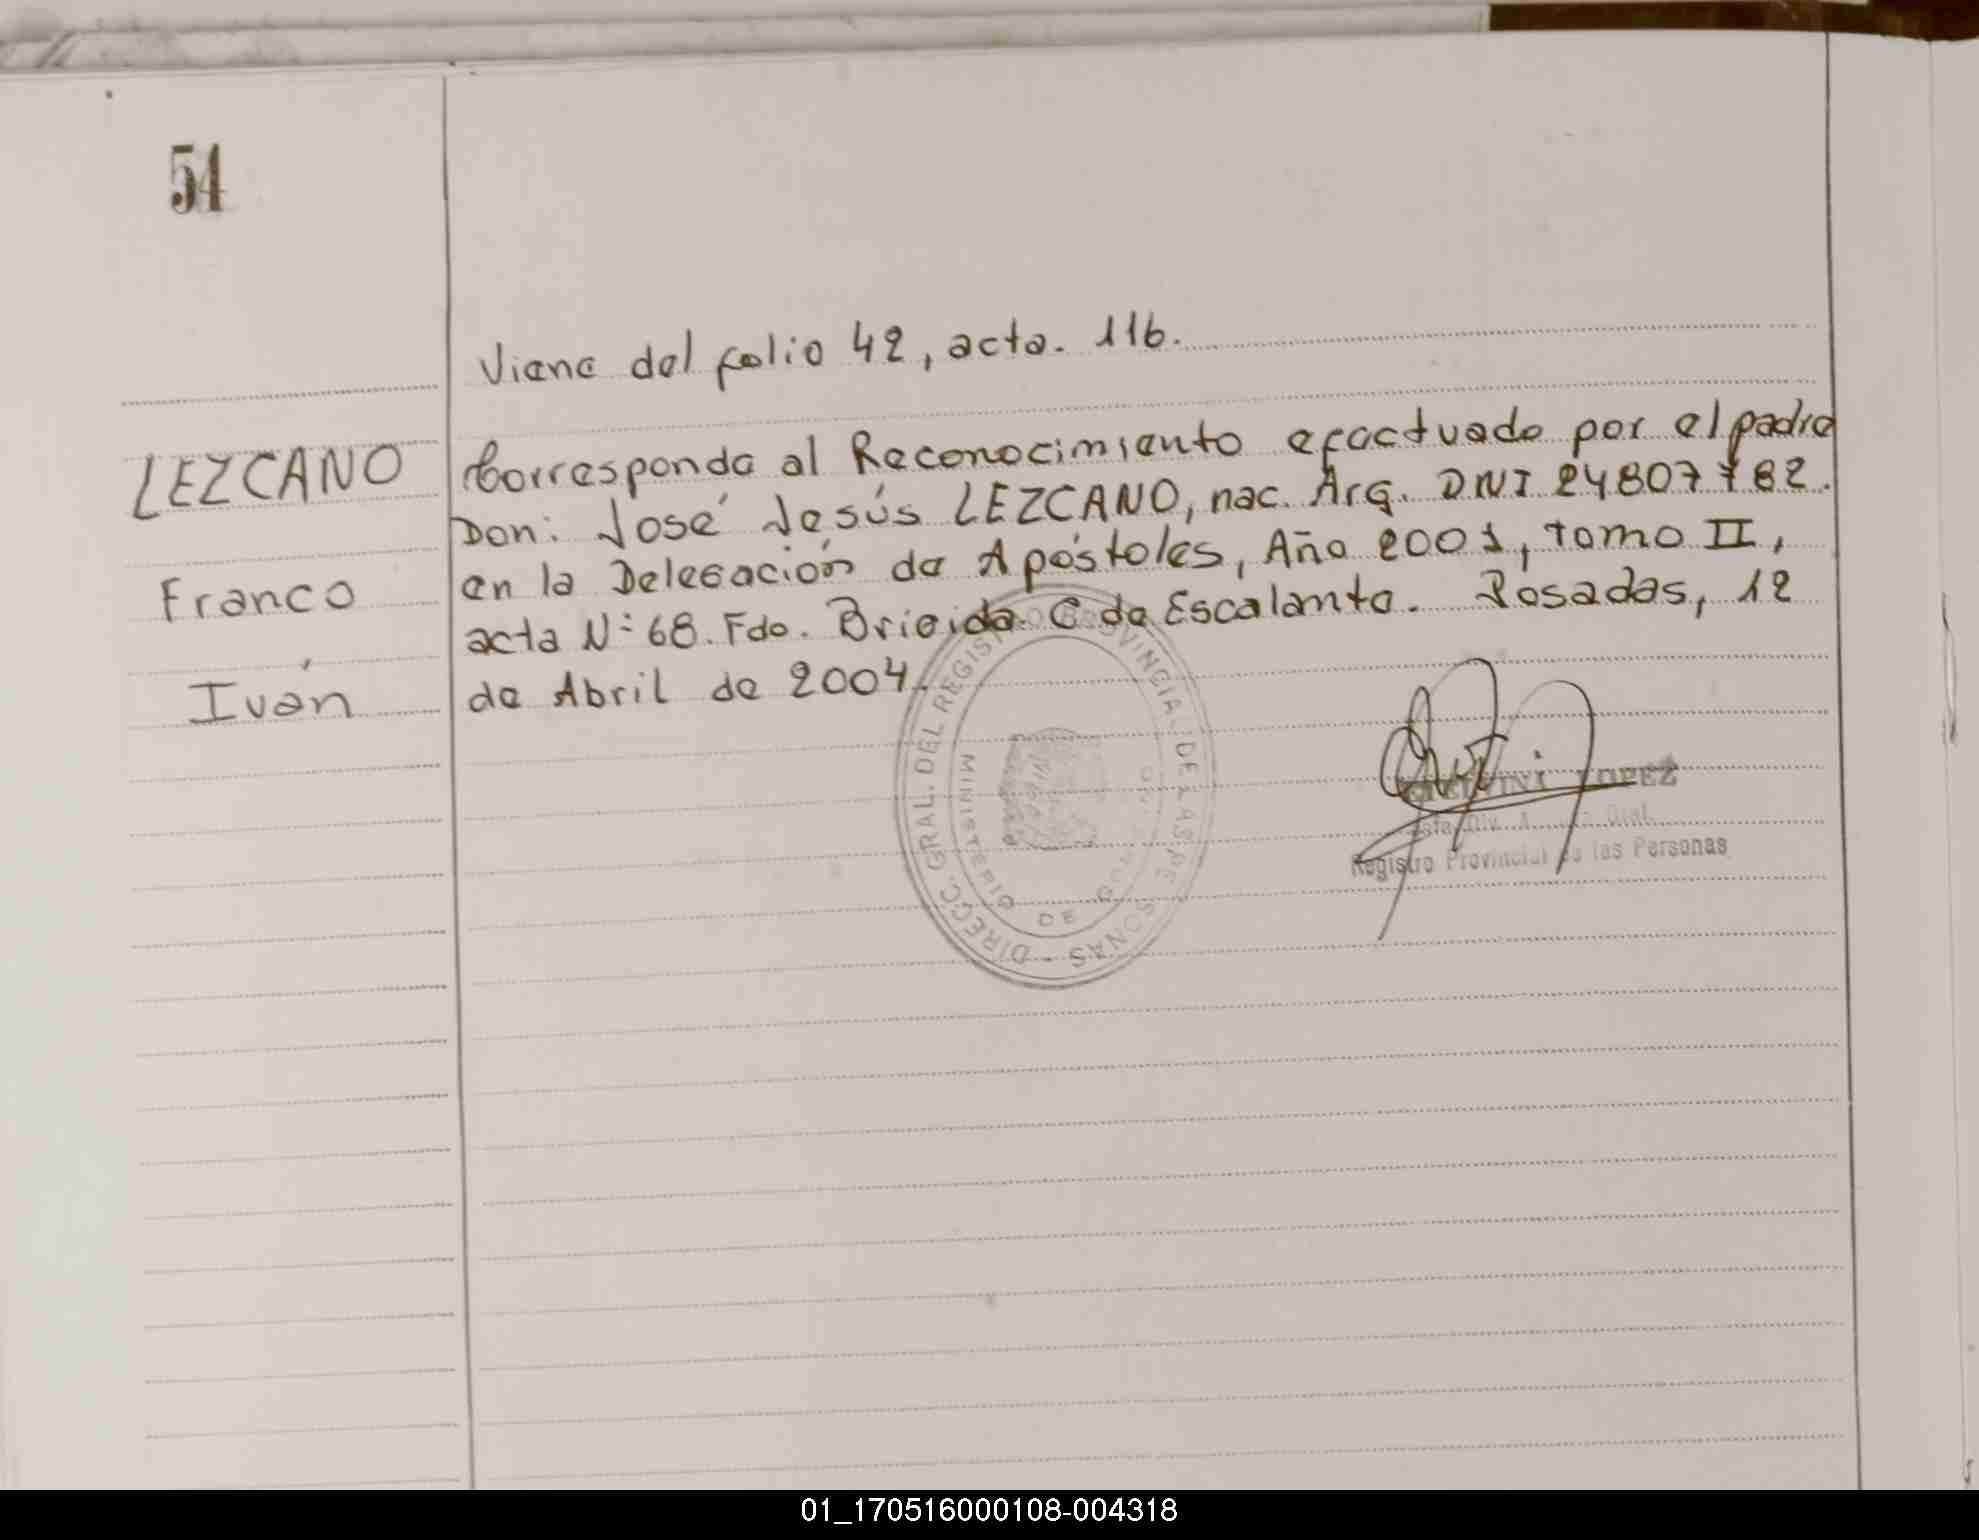 54
Viene del folio 42, acta. 116.
LEZCANO
Franco
Iván
Corresponde al Reconocimiento efectuado por el padre
Don: José Jesús LEZCANO, nac. Arg. DNI 24807782.
en la Delegación de Apóstoles, Año 2001, tomo II,
acta Nº 68. Fdo. Brigida C de Escalante. Posadas, 12
de Abril de 2004.
DIRECC. GRAL. DEL REGISTRO PROVINCIAL DE LAS PERSONAS -
MINISTERIO DE
LOPEZ
Registro Provincial de las Personas
01_170516000108-004318